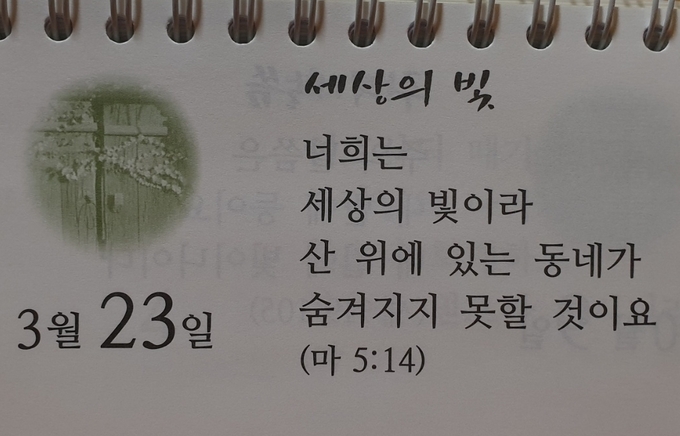 세상의 빛
너희는
세상의 빛이라
산 위에 있는 동네가
숨겨지지 못할 것이요
(마 5:14)
3월 23일